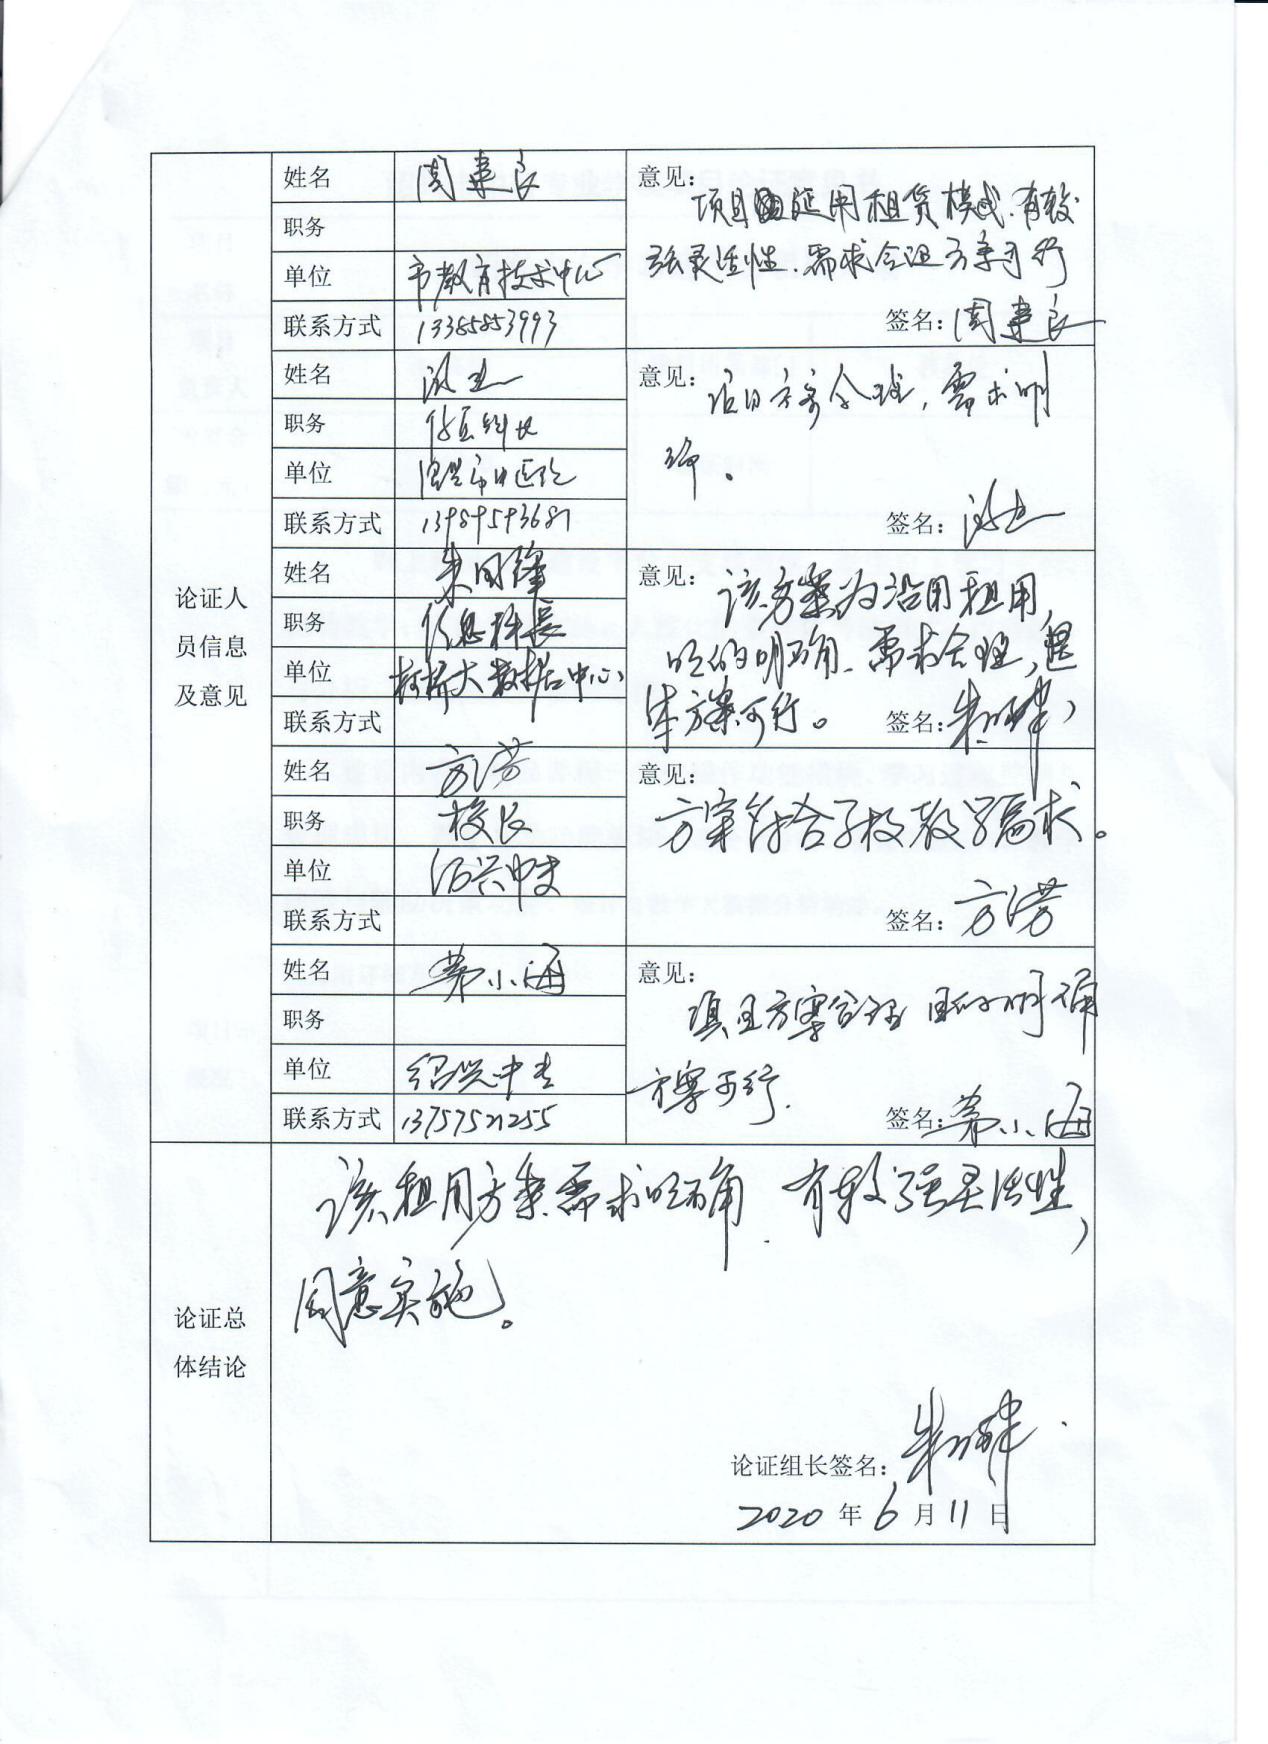 姓名 周建良
职务
单位 市教育技术中心
联系方式 13385853993
意见:
项目延用租赁模式、有较
强灵活性、需求合理方案可行
签名: 周建良
姓名
职务 信息科长
单位 绍兴市中医院
联系方式 13989593681
意见:
项目方案合理，需求明
确。
签名:
论证人
员信息
及意见
姓名 朱国锋
职务 信息科长
单位 柯桥大数据中心
联系方式
意见:
该方案为沿用租用,
目的明确、需求合理,整
体方案可行。
签名:
姓名 方芳
职务 校长
单位 绍兴中专
联系方式
意见:
方案符合学校教学需求。
签名: 方芳
姓名 茅小海
职务
单位 绍兴中专
联系方式 13757521255
意见:
项目方案合理 目的明确
方案可行.
签名: 茅小海
论证总
体结论
该租用方案需求明确. 有较强灵活性,
同意实施。
论证组长签名:
2020 年 6 月 11 日